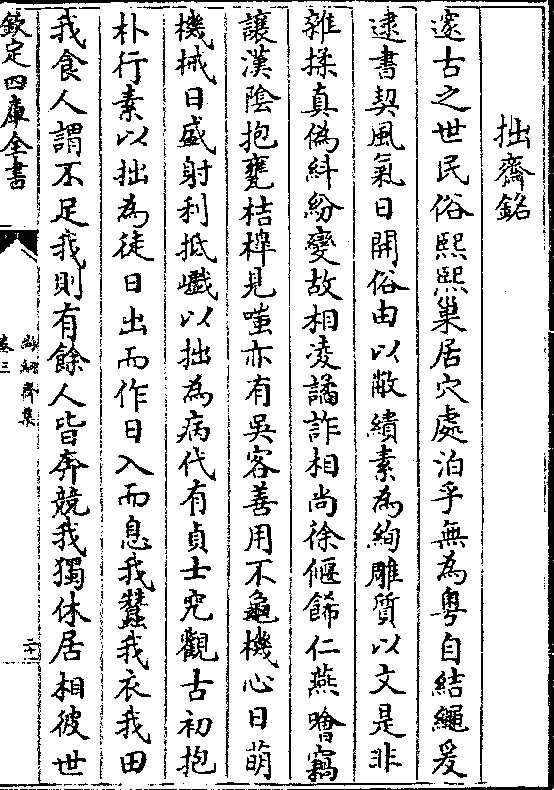 拙齋銘
邃古之世民俗熙熙巢居穴處泊乎無為粤自結繩爰
逮書契風氣日開俗由以敝繢素為絢雕質以文是非
雜揉真偽紏紛變故相凌譎詐相尚徐偃餙仁燕噲竊
讓漢陰抱甕桔橰見嗤亦有吳客善用不龜機心日萌
機械日盛射利抵巇以拙為病代有貞士宄觀古初抱
朴行素以拙為徒日出而作日入而息我蠶我衣我田
我食人謂不足我則有餘人皆奔競我獨休居相彼世
欽定四庫全書
卷三